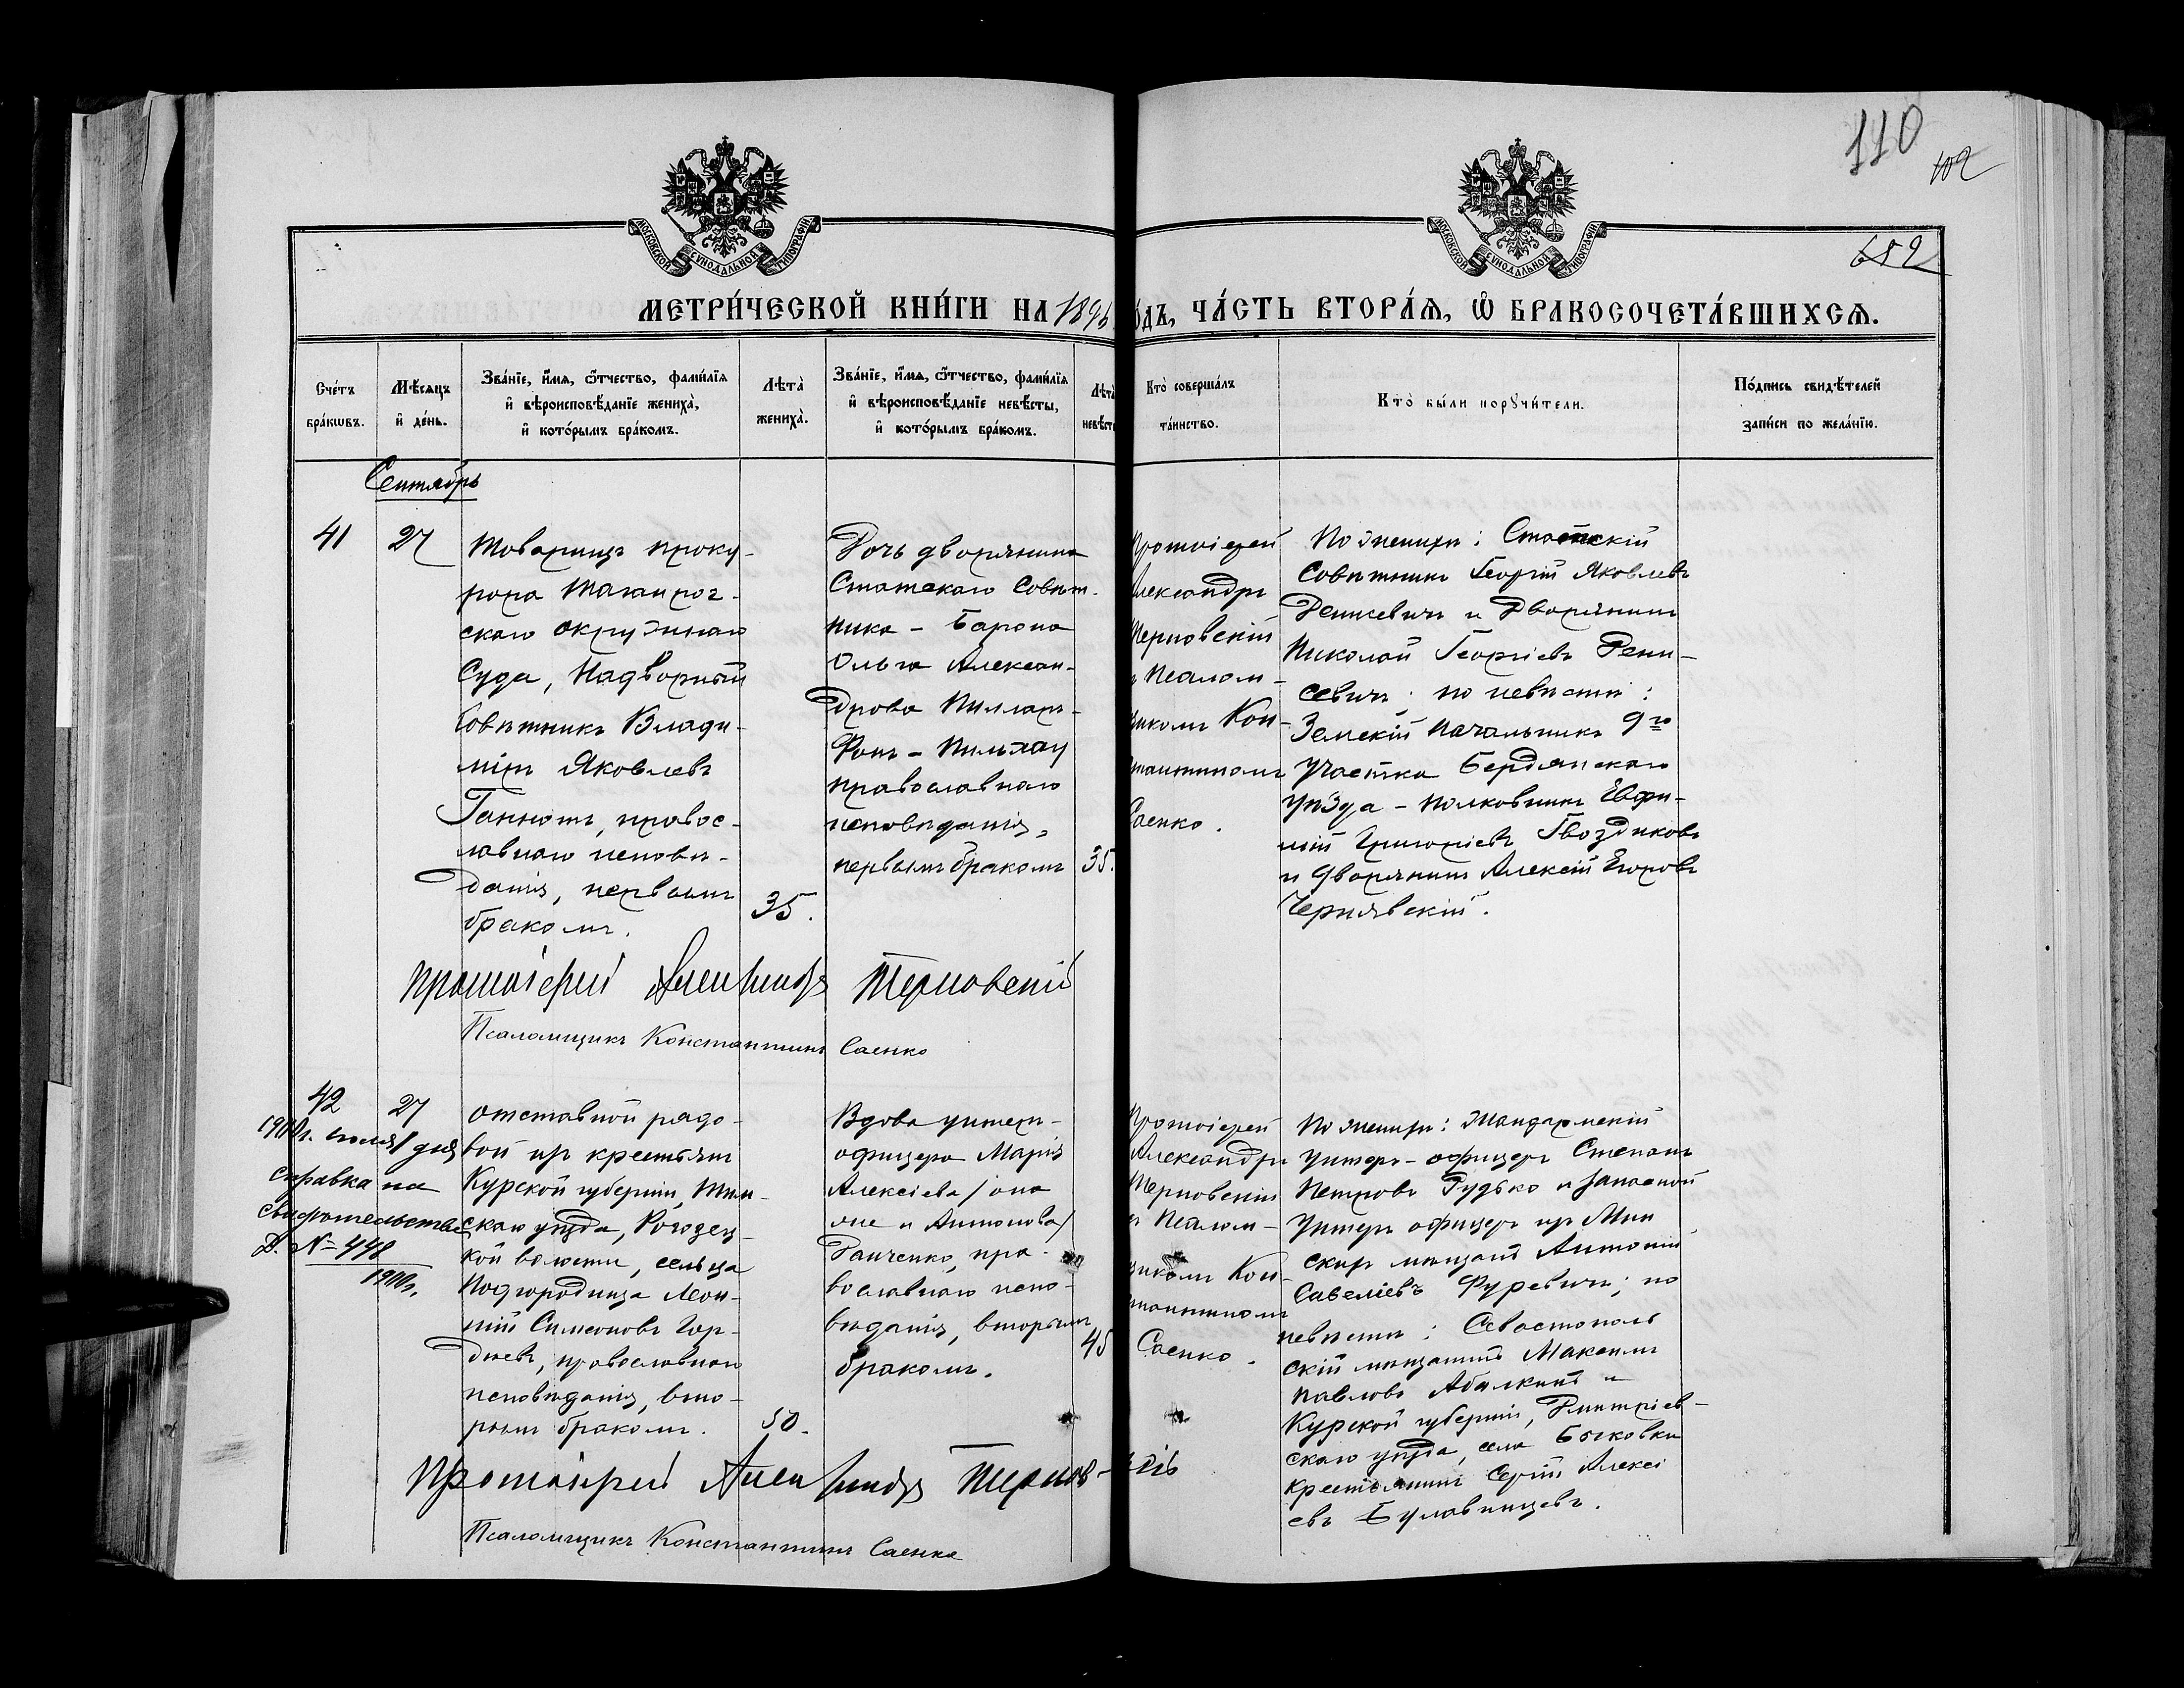 110
102
652
МОСКОВСКОЙ СѴНОДАЛЬНОЙ ТИПОГРАФІИ
МОСКОВСКОЙ СѴНОДАЛЬНОЙ ТИПОГРАФІИ
МЕТРИ́ЧЕСКОЙ КНИ́ГИ НА 1896
О́ДЪ, ЧА́СТЬ ВТОРА́Ѧ, Ѽ БРАКОСОЧЕТА́ВШИХСѦ.
Сче́тъ
бра́кѡвъ.
Мѣ́сѧцъ
и҆ де́нь.
Зва́нїе, и҆́мѧ, ѻ҆́тчество, фами́лїѧ
и҆ вѣроисповѣ́данїе жениха̀,
и҆ кото́рымъ бра́комъ.
Лѣта̀
жениха̀.
Зва́нїе, и҆́мѧ, ѻ҆́тчество, фами́лїѧ
и҆ вѣроисповѣ́данїе невѣ́сты,
и҆ кото́рымъ бра́комъ.
Лѣта̀
невѣсты
Кто̀ соверша́лъ
та́инство.
Кто̀ бы́ли порꙋчи́тели.
По́дпись свидѣ́телей
за́писи по жела́нїю.
Сентябрь
41
27
Товарищъ проку-
рора Таганрог-
скаго окружнаго
Суда, Надворный
Совѣтникъ Влади-
міръ Яковлевъ
Ганнотъ, правос-
лавнаго исповѣ-
данія, первымъ
бракомъ.
35.
Дочь дворянина
Статскаго Совѣт-
ника - Барона
Ольга Алексан-
дрова Пилларъ-
Фонъ-Пильхау
православнаго
исповѣданія,
первымъ бракомъ
35.
Протоіерей
Александръ
Терновскій
и Псалом-
щикомъ Кон-
стантиномъ
Саенко.
По женихѣ: Статскій
Совѣтникъ Георгій Яковлевъ
Денисевичъ и Дворянинъ
Николай Георгіевъ Дени-
севичъ; по невѣстѣ:
Земскій Начальникъ 9го
Участка Бердянскаго
уѣзда - полковникъ Евфи-
мій Григоріевъ Гвоздиковъ
и дворянинъ Алексій Егоровъ
Чернявскій.
Протоіерей Александръ Терновскій
Псаломщикъ Константинъ Саенко
42
27
1910г. іюля 1 дня
справка на
свидѣтельство
Д. № 448
1910г.
Отставной рядо-
вой изъ крестьянъ
Курской губерніи, Тим-
скаго уѣзда, Рогозец-
кой волости, сельца
Подгородища Леон-
тій Симеоновъ Гор-
дѣевъ, православнаго
исповѣданія, вто-
рымъ бракомъ.
50.
Вдова унтеръ-
офицера Марія
Алексіева /она
же и Антонова/
Данченко, пра-
вославнаго испо-
вѣданія, вторымъ
бракомъ.
45
Протоіерей
Александръ
Терновскій
и Псалом-
щикомъ Кон-
стантиномъ
Саенко.
По женихѣ: Жандармскій
Унтеръ-офицеръ Степанъ
Петровъ Рудько и запасной
Унтеръ офицеръ изъ Мин
скихъ мѣщанъ Антоній
Савеліевъ Фуревичъ; по
невѣстѣ: Севастополь
скій мѣщанинъ Максимъ
Павловъ Абалкинъ и
Курской губерніи, Дмитріев-
скаго уѣзда, села Быковки
крестьянинъ Сергій Алексі
евъ Булавинцевъ.
Протоіерей Александръ Тернов-скій
Псаломщикъ Константинъ Саенко